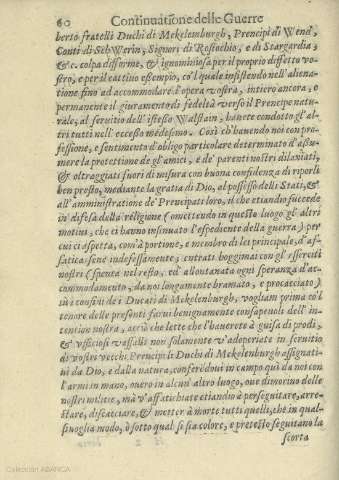 60 Continuatione delle Guerre
berto fratelli Duchi di Mekelemburgh, Prencipi di Wend,
Conti di SchWerin, Signori di Rostochio, e di Stargardia;
&c. colpa difforme, & ignominiosa per il proprio diffetto vo-
stro, e per il cattivo essempio, co'l quale insistendo nell'aliena-
tione fino ad accommodare l'opera vostra, intiero ancora, e
permanente il giuramento di fedeltà verso il Prencipe natu-
rale, al servitio dell'istesso Walstain, havete condotto gl'al-
tri tutti nell'eccesso medesimo. Così c'havendo noi con pro-
fessione, e sentimento d'obligo particolare determinato d'assu-
mere la protettione de gl'amici, e de' parenti nostri dilaniati,
& oltraggiati fuori di misura con buona confidenza di riporli
ben presto, mediante la gratia di Dio, al possesso delli Stati, &
all'amministratione de' Principati loro, il che etiandio succede
in difesa della religione (omettendo in questo luogo gl'altri
motivi, che ci hanno insinuato l'espediente della guerra) per
cui ci aspetta, com'à portione, e membro di lei principale, d'af-
faticarsene indefessamente; entrati hoggimai con gl'esserciti
nostri (spenta nel resto, ed allontanata ogni speranza d'ac-
commodamento, da noi longamente bramato, e procacciato)
sù i confini de i Ducati di Mekelenburgh, vogliam prima co'l
tenore delle presenti farvi benignamente consapevoli dell'in-
tention nostra, acciò che lette che l'haverete à guisa di prodi,
& officiosi vassalli non solamente v'adoperiate in servitio
di vostri vecchi Prencipi li Duchi di Mekelenburgh assignati-
vi da Dio, e dalla natura, conferendovi in campo quà da noi con
l'armi in mano, overo in alcun altro luogo, ove dimorino delle
nostri militie, mà v'affatichiate etiandio à perseguitare, arre-
stare, discacciare, & metter à morte tutti quelli, che in qual-
sivoglia modo, ò sotto qual si sia colore, e pretesto seguitano la
scorta
Colección ABANCA